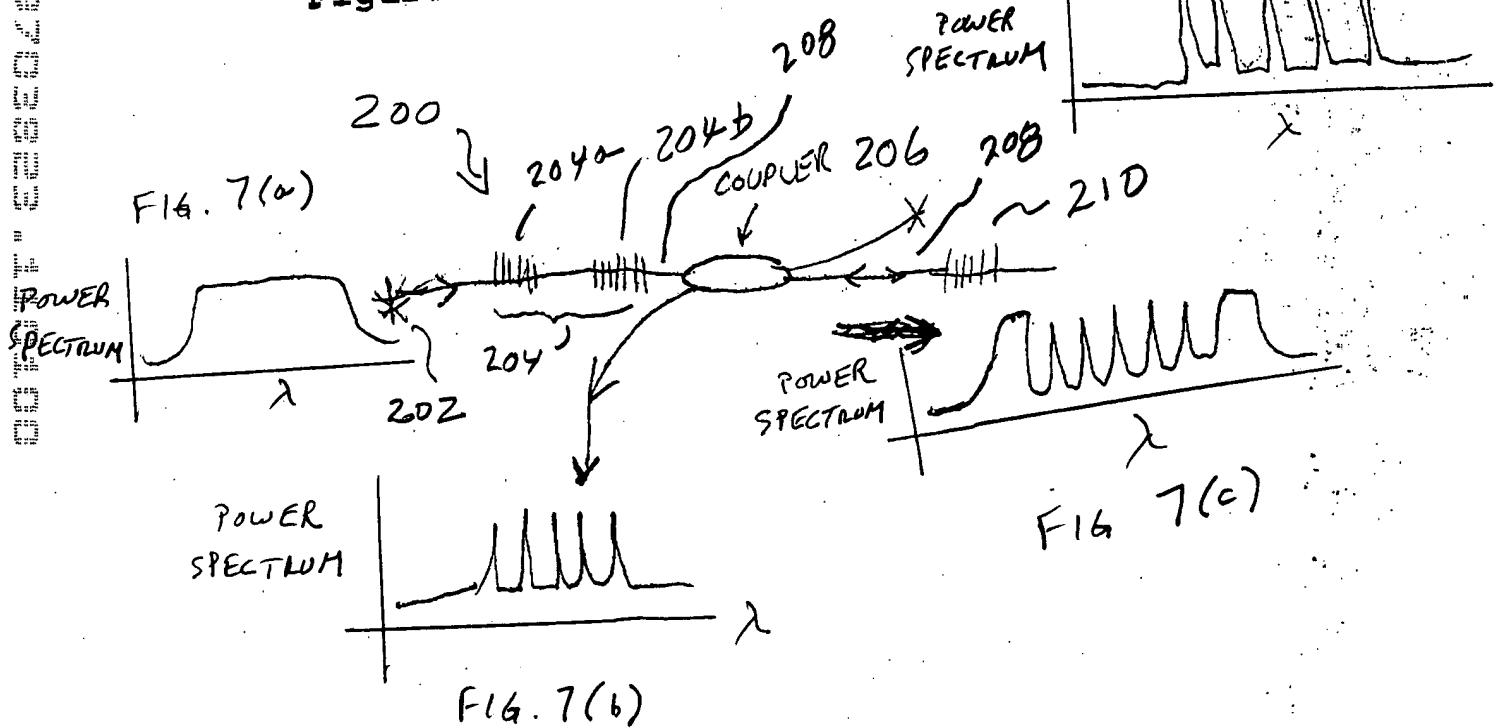 208
POWER
SPECTRUM
λ
200
204a
204b
COUPLER 206
208
210
FIG. 7(a)
POWER
SPECTRUM
λ
202
204
POWER
SPECTRUM
λ
FIG 7(c)
POWER
SPECTRUM
λ
FIG. 7(b)